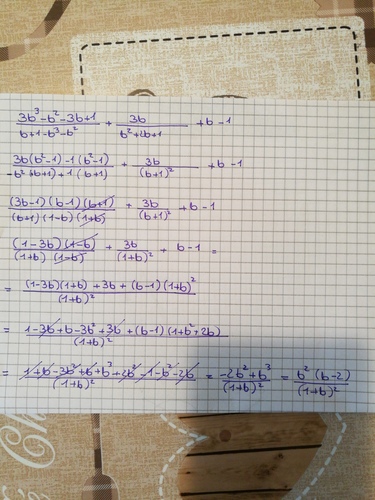 (3b³-b²-3b+1)/(b+1-b³-b²) + 3b/(b²+2b+1) + b-1
(3b(b²-1)-1(b²-1))/(-b²(b+1)+1·(b+1)) + 3b/(b+1)² + b-1
((3b-1)(b-1)(b+1))/((b+1)(1-b)(1+b)) + 3b/(b+1)² + b-1
((1-3b)(1-b))/((1+b)(1-b)) + 3b/(1+b)² + b-1 =
= ((1-3b)(1+b)+3b+(b-1)(1+b)²)/(1+b)²
= (1-3b+b-3b²+3b+(b-1)(1+b²+2b))/(1+b)²
= (1+b-3b²+b+b³+2b²-1-b²-2b)/(1+b)² = (-2b²+b³)/(1+b)² = (b²(b-2))/(1+b)²